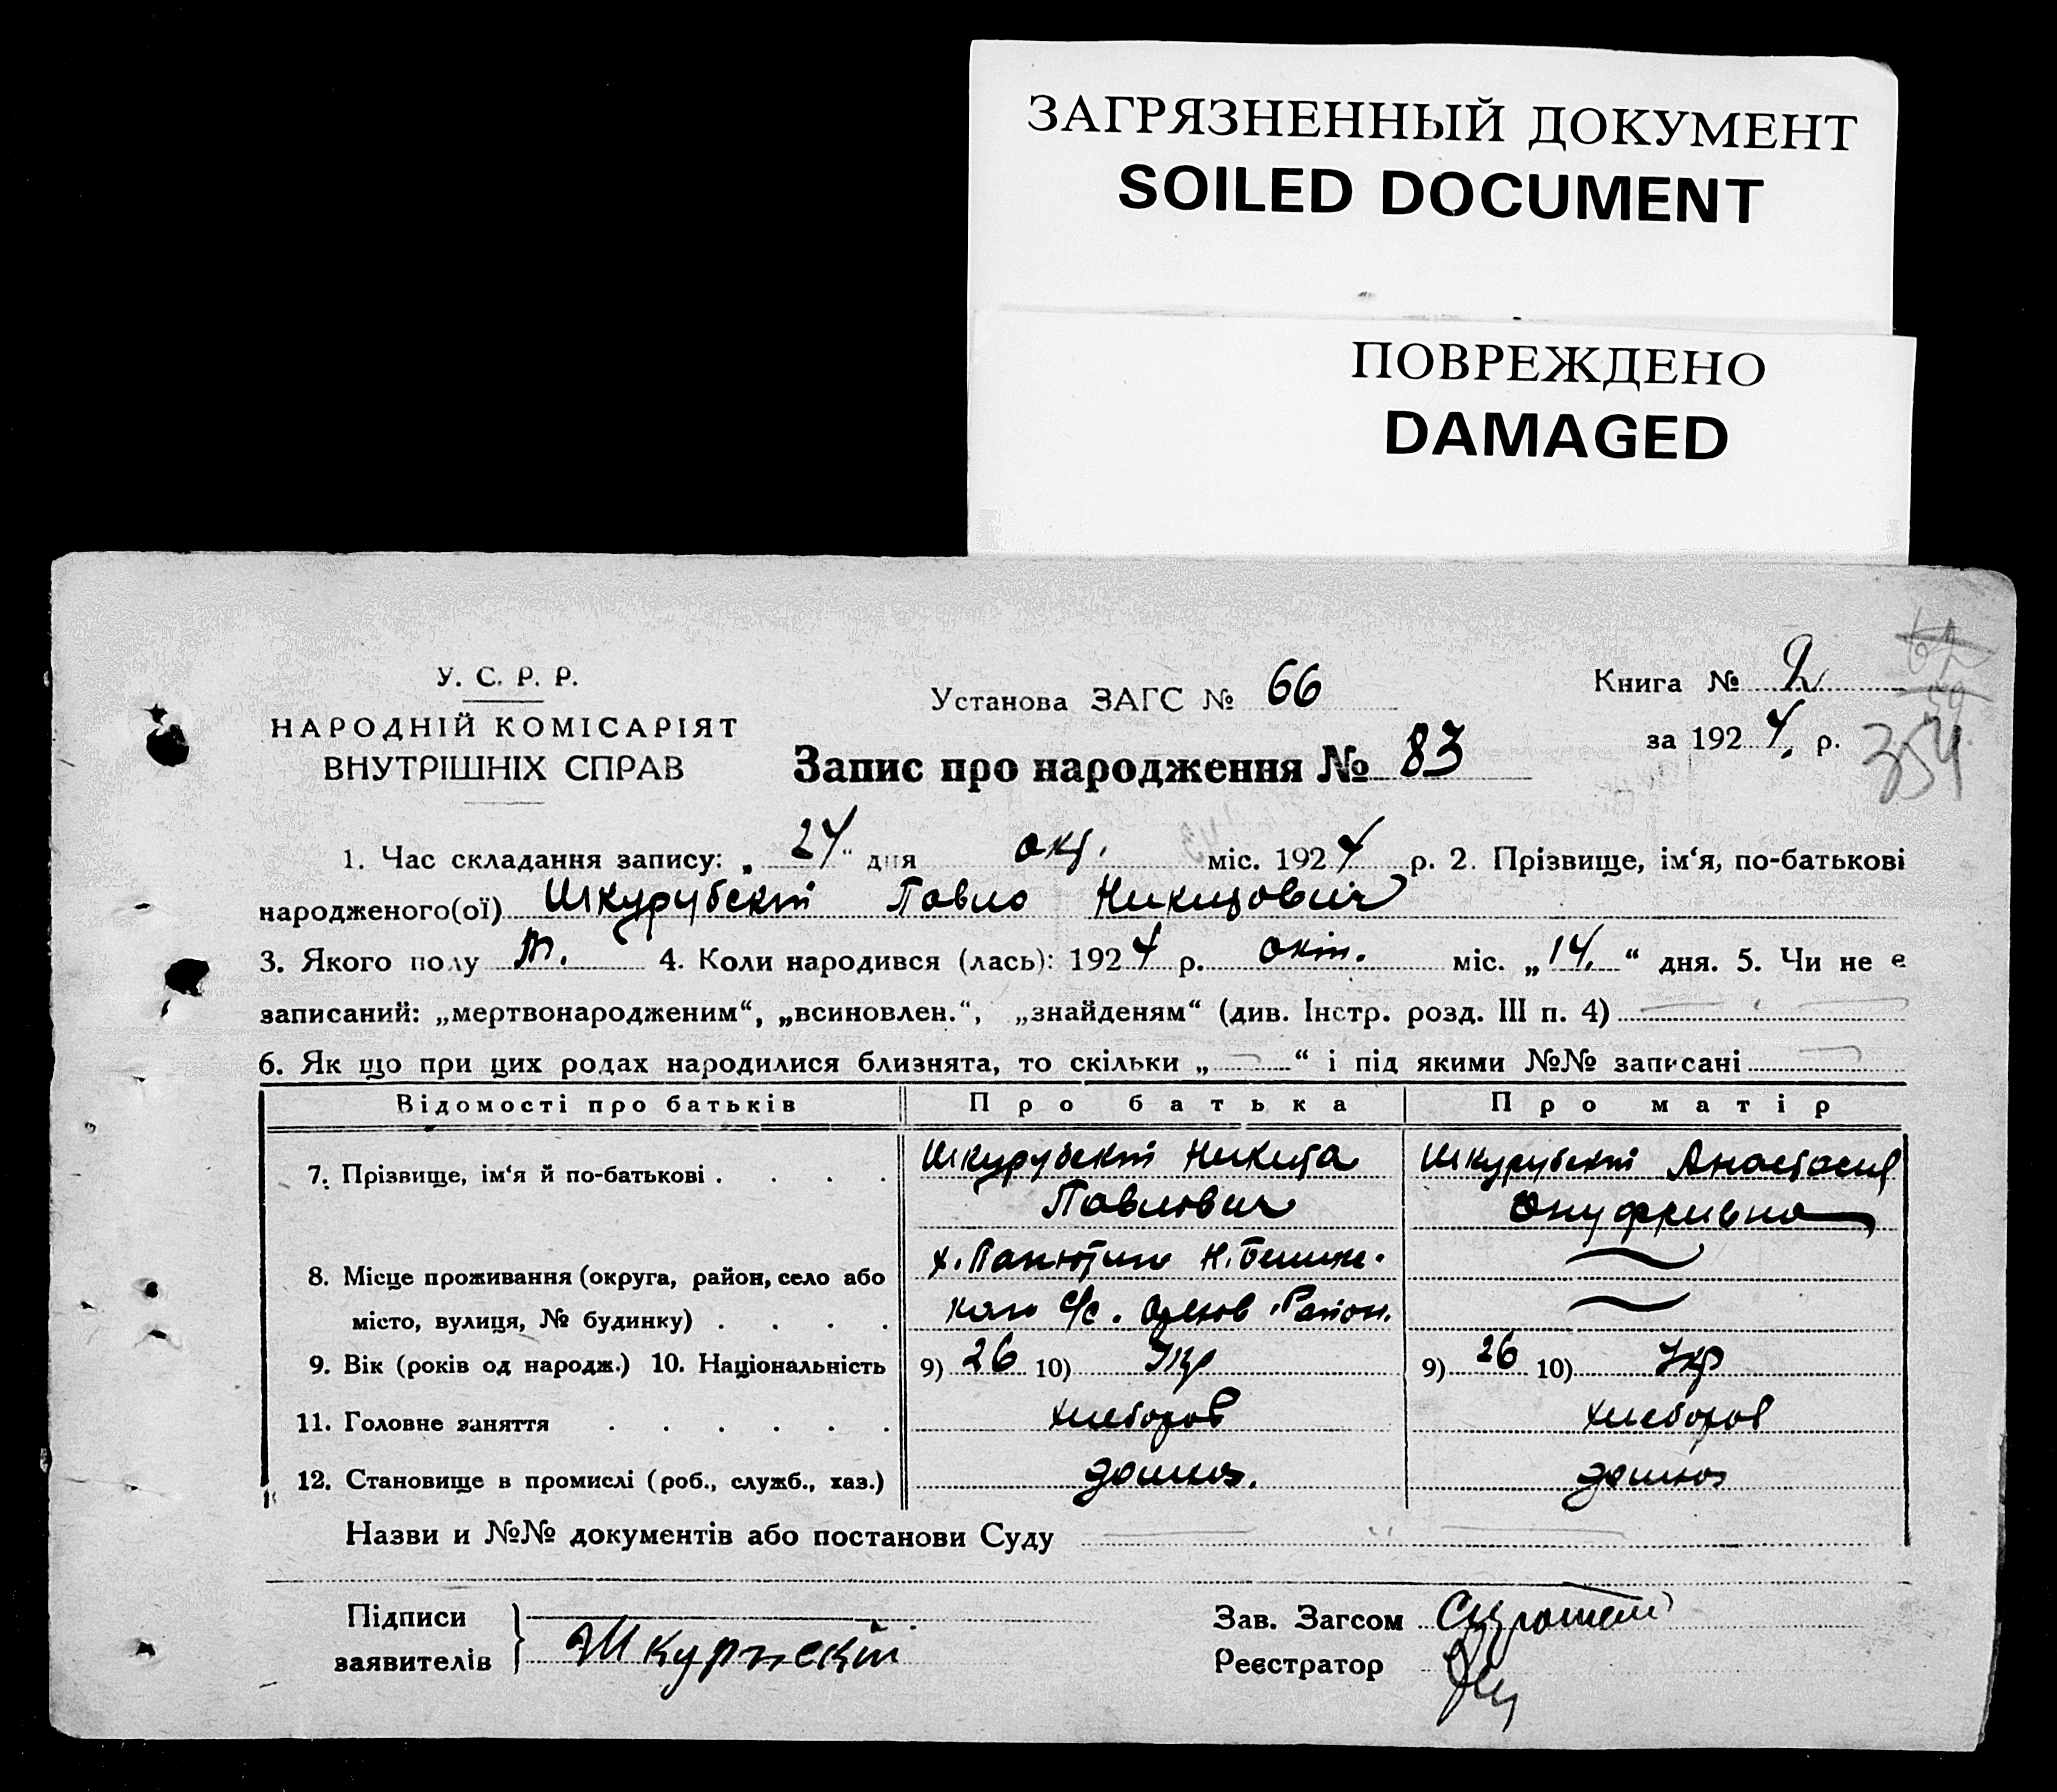 ЗАГРЯЗНЕННЫЙ ДОКУМЕНТ
SOILED DOCUMENT
ПОВРЕЖДЕНО
DAMAGED
У. С. Р. Р.
НАРОДНІЙ КОМІСАРІЯТ
ВНУТРІШНІХ СПРАВ
Установа ЗАГС № 66
Запис про народження № 83
Книга № 2
за 1924. р.
354
1. Час складання запису: „24“ дня окт. міс. 1924 р. 2. Прізвище, ім‘я, по-батькові
народженого(ої) Шкурубскій Павло Никитович
3. Якого полу м. 4. Коли народився (лась): 1924 р. окт. міс. „14.“ дня. 5. Чи не є
записаний: „мертвонародженим“, „всиновлен.“, „знайденям“ (див. Інстр. розд. III п. 4)
6. Як що при цих родах народилися близнята, то скільки „ “ і під якими №№ записані
Відомості про батьків Про батька Про матір
7. Прізвище, ім‘я й по-батькові . . . . Шкурубскій Никита Шкурубскій Анастасия
Павлович Онуфриевна
8. Місце проживання (округа, район, село або х.
місто, вулиця, № будинку) . . . . с/с. Район.
9. Вік (років од народж.) 10. Національність 9) 26 10) Укр 9) 26 10) Укр
11. Головне заняття . . . . . . хлебороб хлебороб
12. Становище в промислі (роб., служб., хаз.)
Назви и №№ документів або постанови Суду
Підписи
заявителів
Зав. Загсом
Реєстратор